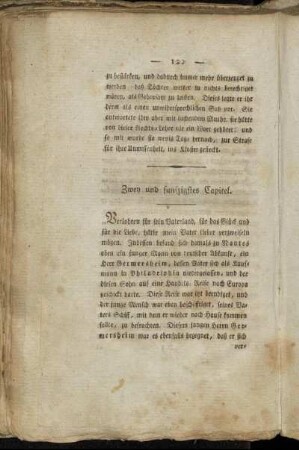 — 122 —
zu bestärken, und dadurch immer mehr überzeugt zu
werden, daß Töchter weiter zu nichts berechtiget
wären, als Gehorsam zu leisten. Dieses legte er ihr
sodann als einen unwidersprechlichen Satz vor. Sie
antwortete ihm aber mit lachendem Munde, sie hätte
von dieser Rechtslehre nie ein Wort gehört; und
so mit wurde sie wenig Tage hernach, zur Strafe
für ihre Unwissenheit, ins Kloster geschickt.
Zwey und funfzigstes Capitel.
Verlohren für sein Vaterland, für das Glück und
für die Liebe, hätte mein Vater lieber verzweifeln
mögen. Indessen befand sich damals zu Nantes
eben ein junger Mann von teutscher Abkunft, ein
Herr Germersheim, dessen Vater sich als Kauf-
mann in Philadelphia niedergelassen, und der
diesen Sohn auf eine Handels-Reise nach Europa
geschickt hatte. Diese Reise war itzt beendiget, und
der junge Mensch war eben beschäftiget, seines Va-
ters Schiff, mit dem er wieder nach Hause kommen
sollte, zu befrachten. Diesem jungen Herrn Ger-
mersheim war es ebenfalls begegnet, daß er sich